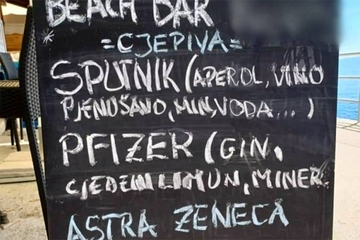 BEACH BAR
* =CJEPIVA=
SPUTNIK (APEROL, VINO
PJENUŠAVO, MIN. VODA...)
PFIZER (GIN,
CIJEĐENI LIMUN, MINER.
ASTRA ZENECA